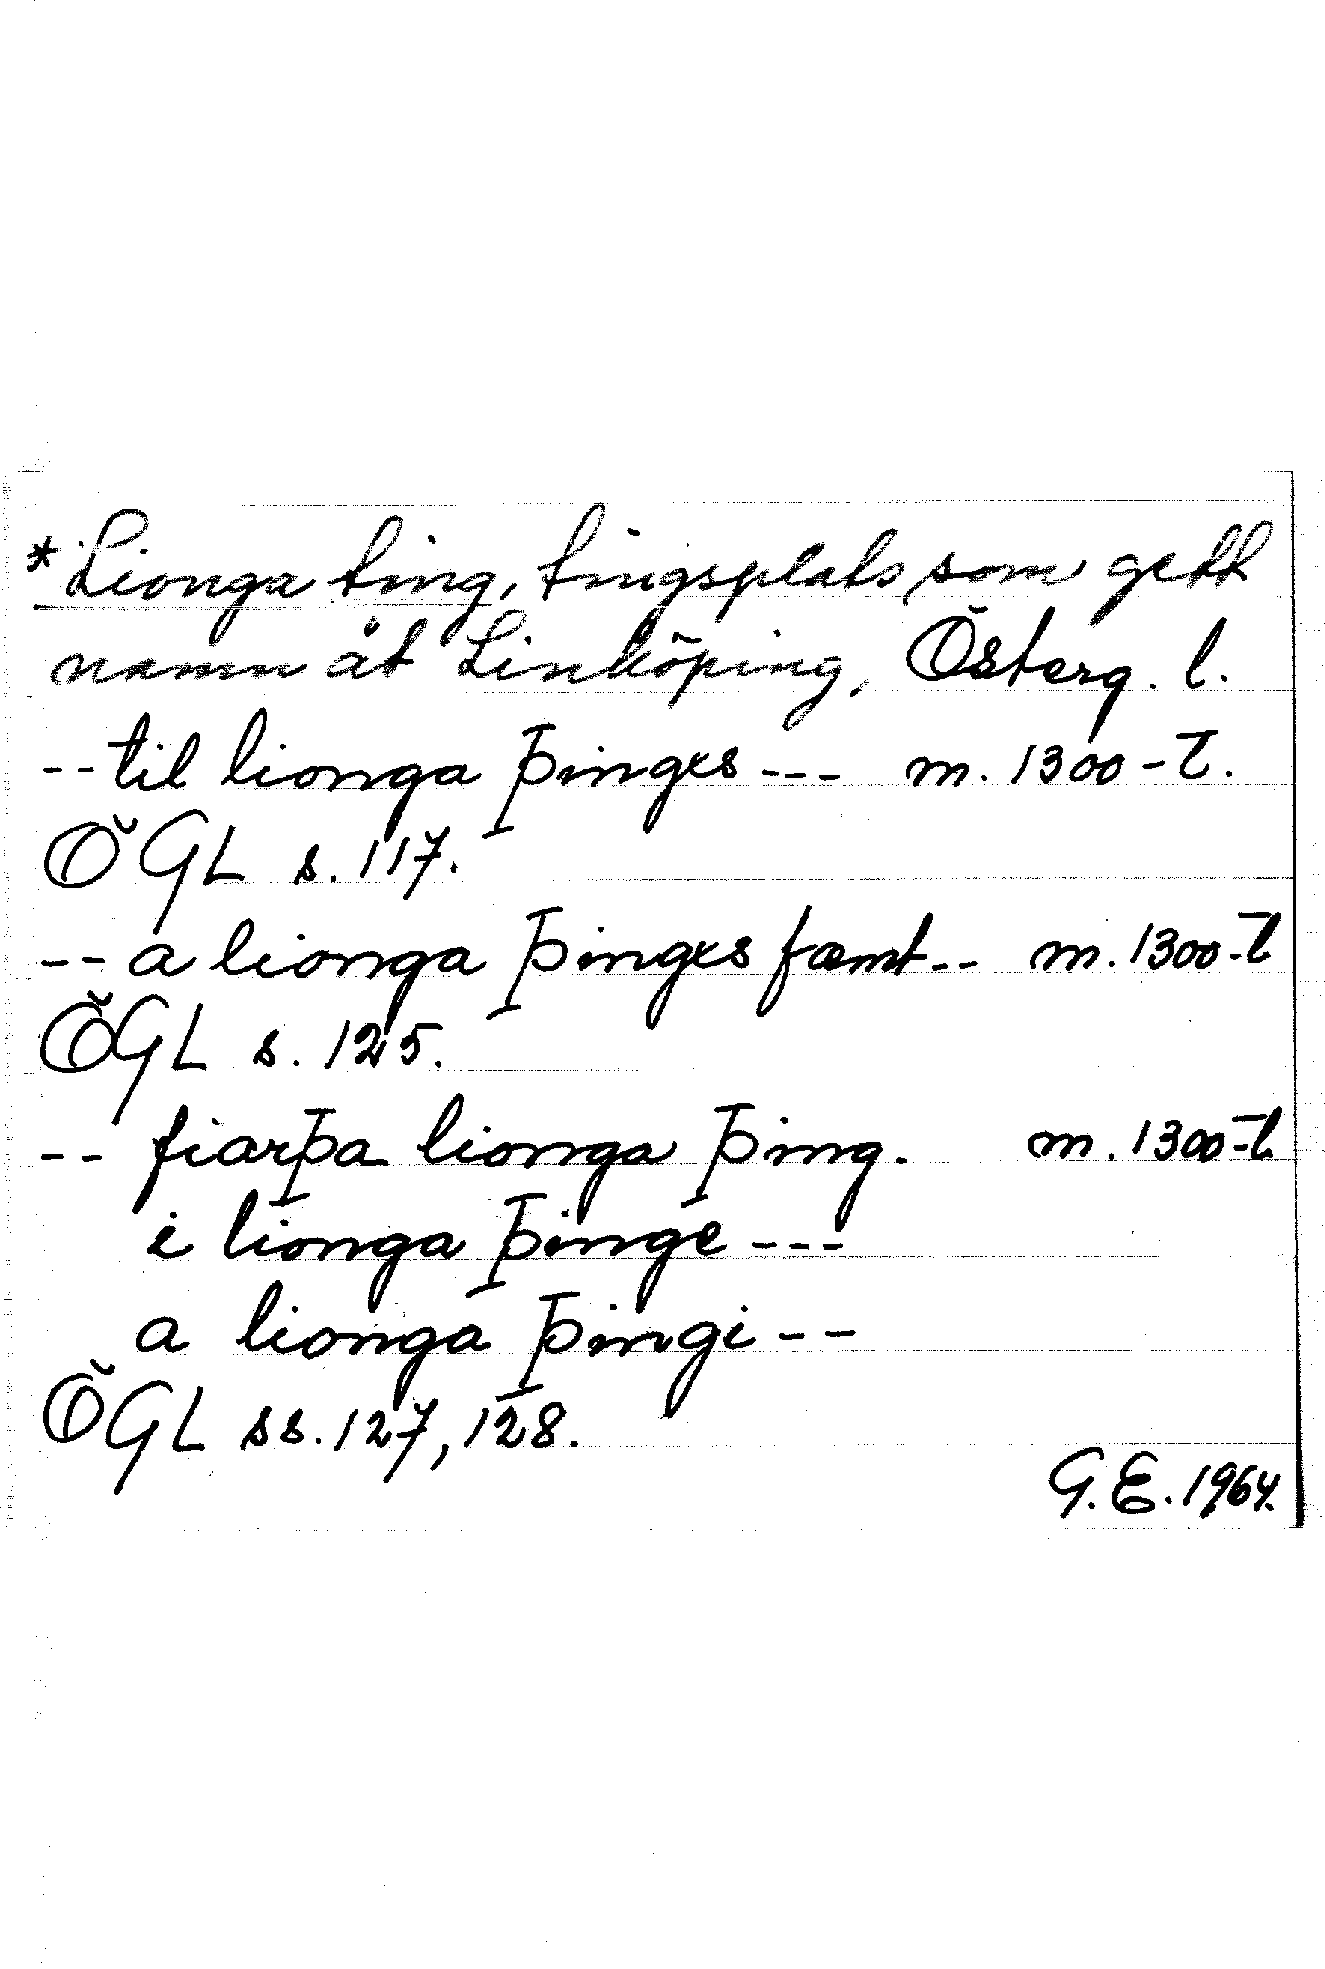 *Lionga ting, tingsplats som gett
namn åt Linköping, Österg. l.
--til lionga þingxs --- m. 1300-t.
ÖGL s. 117.
--a lionga þingxs fæmt-- m. 1300-t
ÖGL s. 125.
-- fiarþa lionga þing. m. 1300-t
i lionga þinge ---
a lionga þingi --
ÖGL ss. 127, 128.
G.E. 1964.